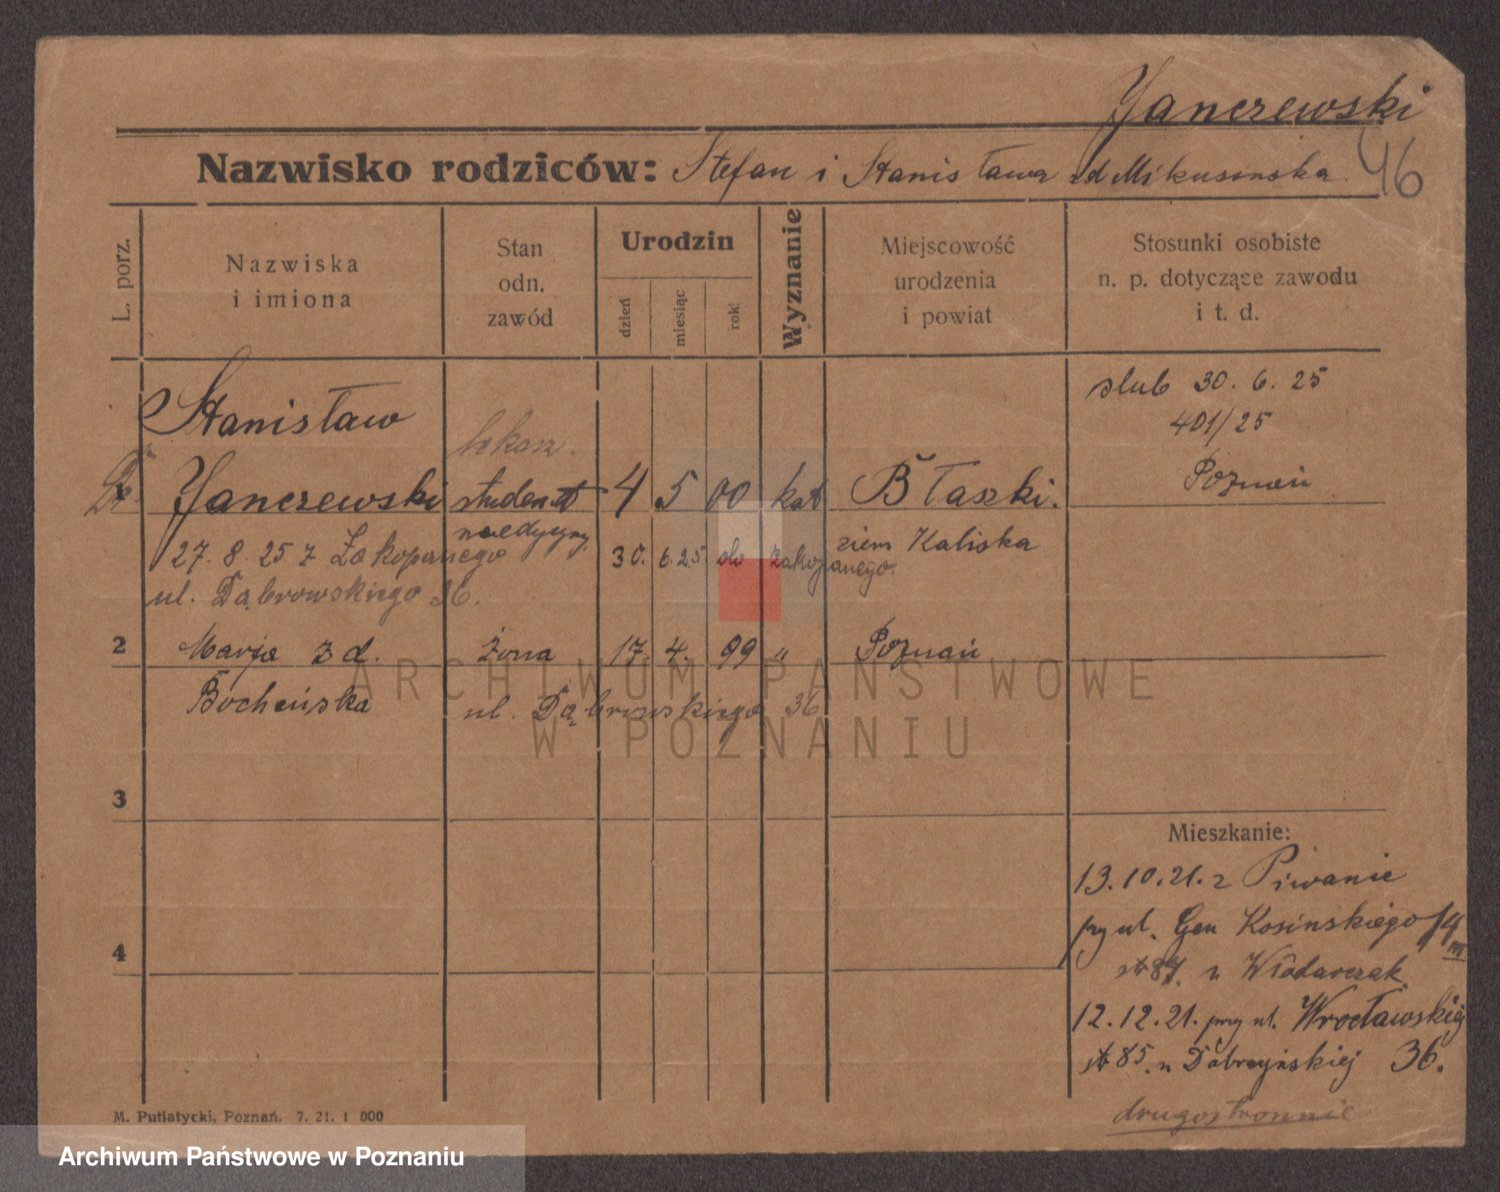 Janczewski
Nazwisko rodziców: Stefan i Stanisława zd Mikusińska 46
L. porz.
Nazwiska
i imiona
Stan
odn.
zawód
Urodzin
dzień
miesiąc
rok
Wyznanie
Miejscowość
urodzenia
i powiat
Stosunki osobiste
n. p. dotyczące zawodu
i t. d.
Stanisław
ślub 30. 6. 25
401/25
Poznań
lekarz.
Dr. Janczewski student 4 5 00 kat Błaszki.
medycyny ziem Kaliska
27. 8. 25 z Zakopanego 30. 6. 25 do Zakopanego.
ul. Dąbrowskiego 36.
2 Marja zd. żona 17. 4. 99 " Poznań
Bocheńska ul. Dąbrowskiego 36
ARCHIWUM PAŃSTWOWE
W POZNANIU
3
4
Mieszkanie:
13. 10. 21. z Piwanie
przy ul. Gen Kosińskiego 14
87. u Włodarczak
12. 12. 21. przy ul. Wrocławskiej
85. u Dobrzyńskiej 36.
drugostronnie
M. Putiatycki, Poznań. 7. 21. 1 000
Archiwum Państwowe w Poznaniu